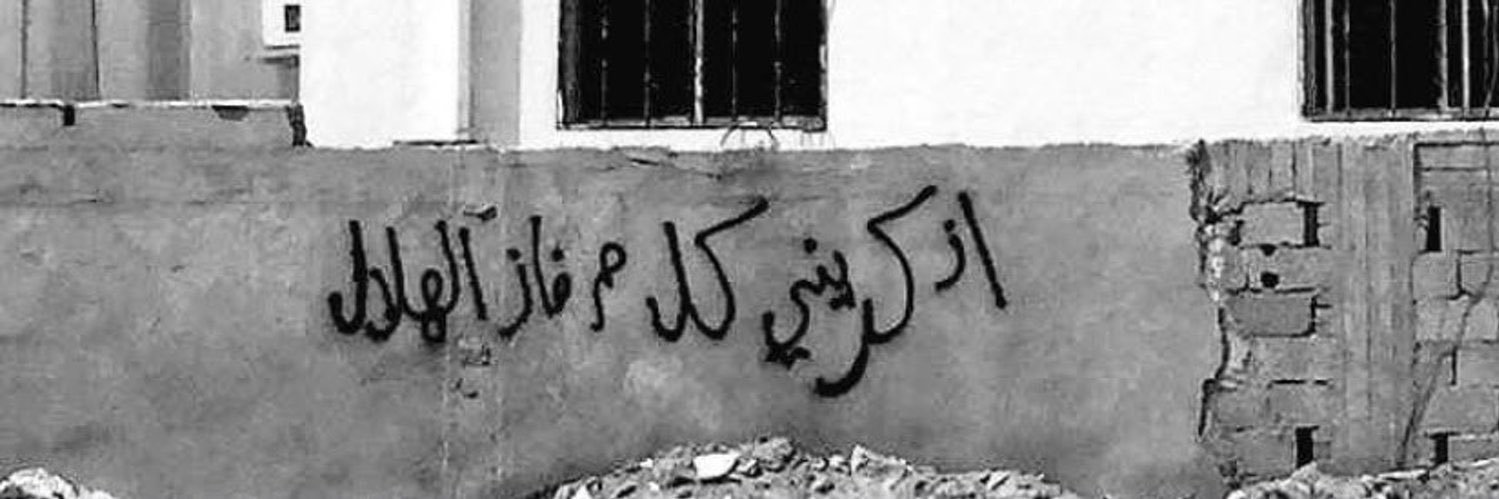 اذكريني كل مر فاز الهلال